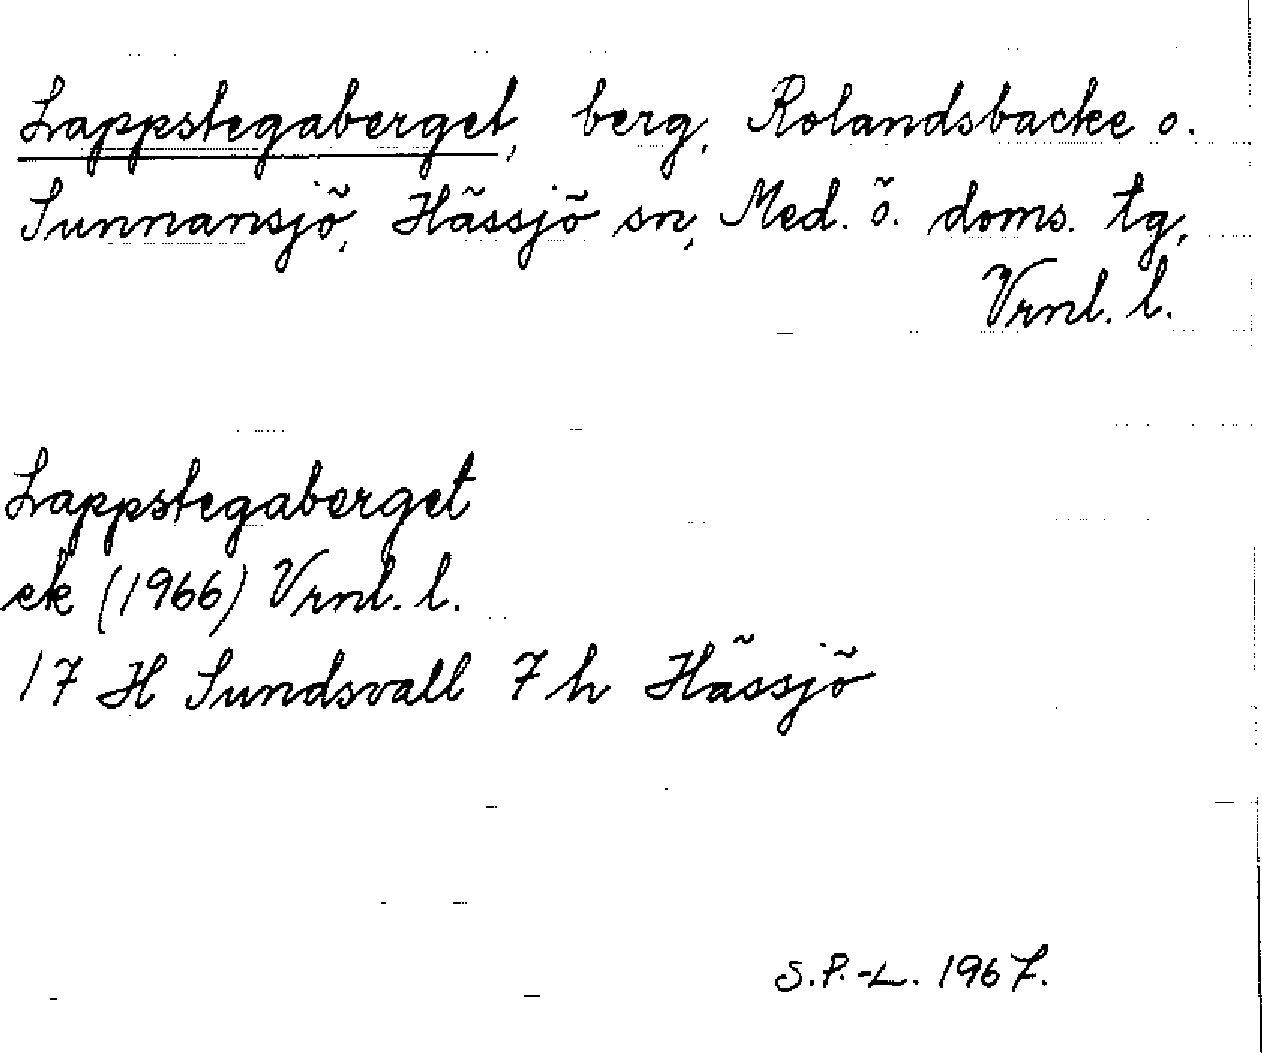 Lappstegaberget, berg, Rolandsbacke o.
Sunnansjö, Hässjö sn, Med. ö. doms. tg,
Vrnl. l.
Lappstegaberget
ek (1966) Vrnl. l.
17 H Sundsvall 7 h Hässjö
S.P.-L. 1967.